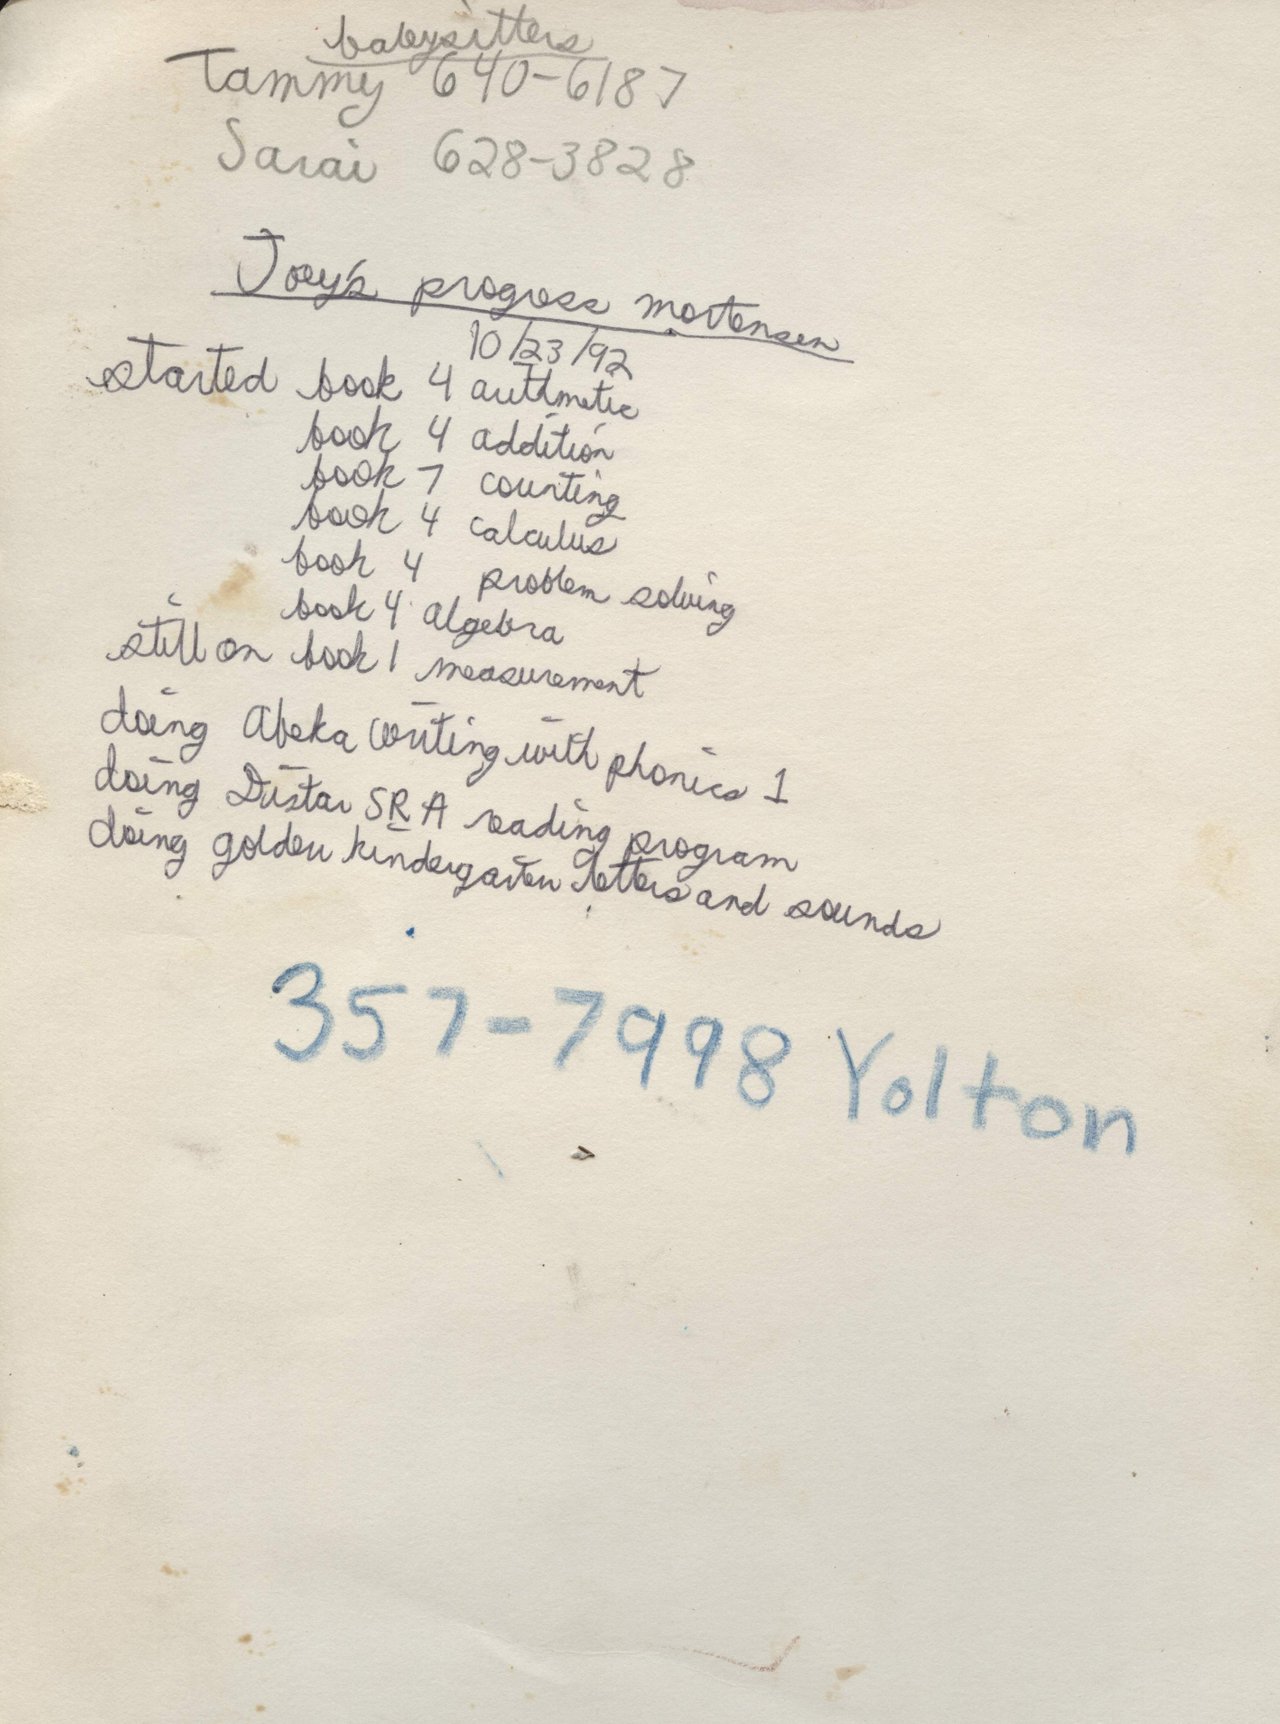 babysitters
Tammy 640-6187
Sarai 628-3828
Joey's progress mortensen
10/23/92
started book 4 arithmetic
book 4 addition
book 7 counting
book 4 calculus
book 4 problem solving
book 4 algebra
still on book 1 measurement
doing Abeka writing with phonics 1
doing Distar SRA reading program
doing golden kindergarten letters and sounds
357-7998 Yolton